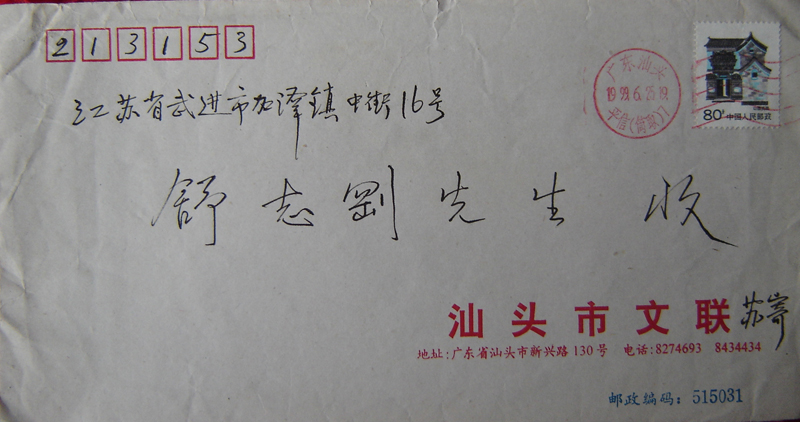 213153
广东汕头
1999.6.25.19
80分 中国人民邮政
江苏省武进市加泽镇中街16号
舒志剛先生 收
汕头市文联 苏寄
地址:广东省汕头市新兴路130号 电话:8274693 8434434
邮政编码：515031